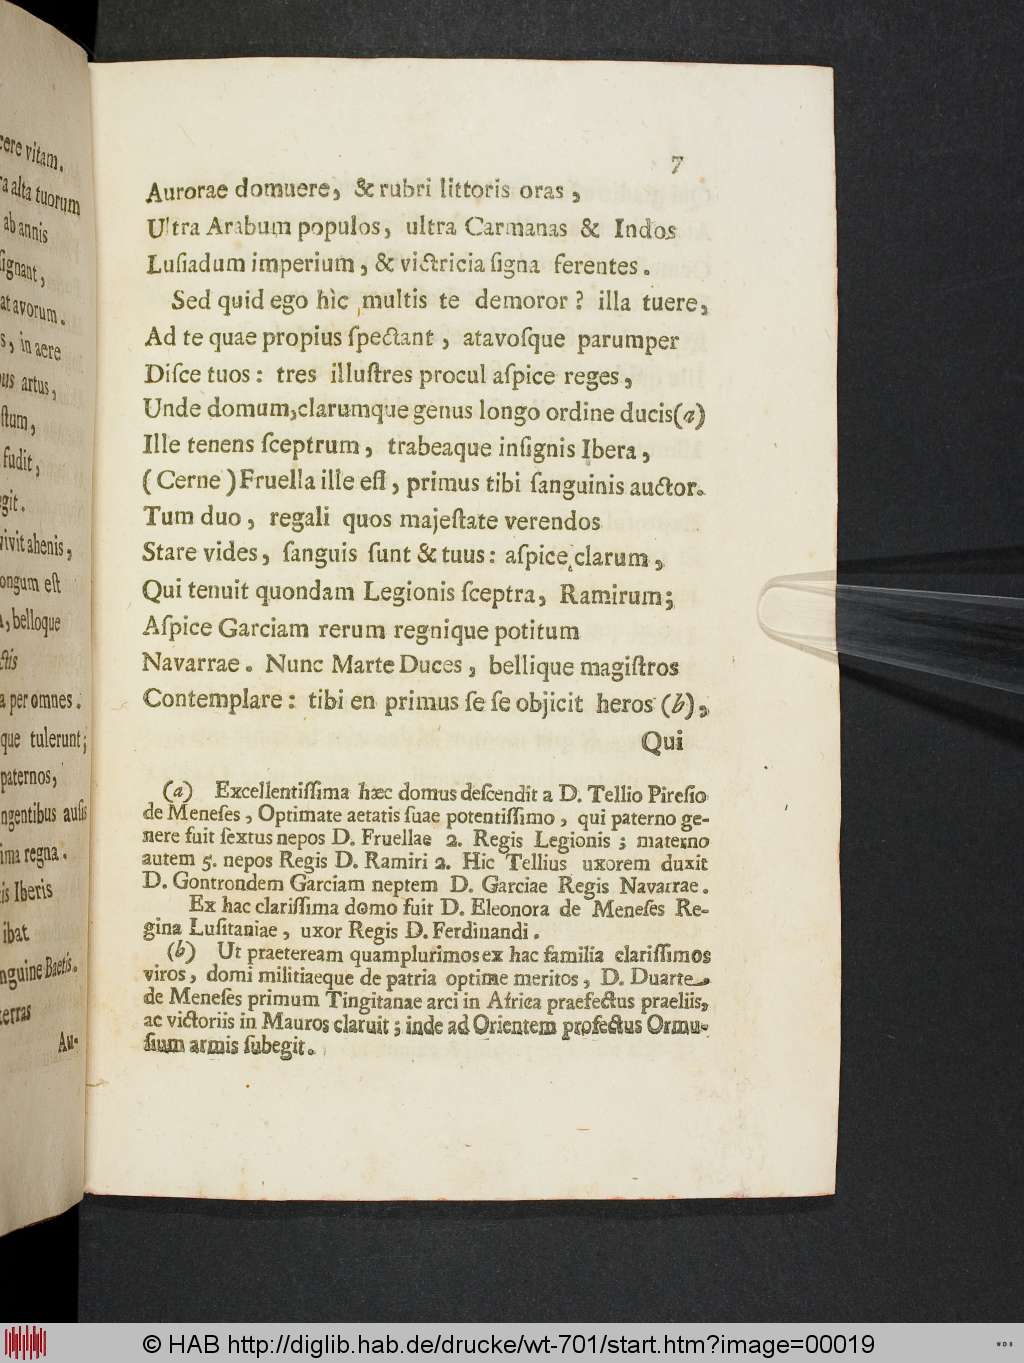 cere vitam.
alta tuorum
ab annis
signant,
atavorum.
s, in aere
artus,
stum,
fudit,
git.
vivit ahenis,
longum est
, belloque
ctis
a per omnes.
que tulerunt;
paternos,
ngentibus ausis
ima regna.
is Iberis
ibat
nguine Baetis.
terras
Au-
7
Aurorae domuere, & rubri littoris oras,
Ultra Arabum populos, ultra Carmanas & Indos
Luſiadum imperium, & victricia ſigna ferentes.
Sed quid ego hìc multis te demoror? illa tuere,
Ad te quae propius ſpectant, atavoſque parumper
Diſce tuos: tres illuſtres procul aſpice reges,
Unde domum, clarumque genus longo ordine ducis (a)
Ille tenens ſceptrum, trabeaque inſignis Ibera,
(Cerne) Fruella ille eſt, primus tibi ſanguinis auctor.
Tum duo, regali quos majeſtate verendos
Stare vides, ſanguis ſunt & tuus: aſpice clarum,
Qui tenuit quondam Legionis ſceptra, Ramirum;
Aſpice Garciam rerum regnique potitum
Navarrae. Nunc Marte Duces, bellique magiſtros
Contemplare: tibi en primus ſe ſe objicit heros (b),
Qui
(a) Excellentiſſima hæc domus deſcendit a D. Tellio Pireſio
de Meneſes, Optimate aetatis ſuae potentiſſimo, qui paterno ge-
nere fuit ſextus nepos D. Fruellae 2. Regis Legionis; materno
autem 5. nepos Regis D. Ramiri 2. Hic Tellius uxorem duxit
D. Gontrondem Garciam neptem D. Garciae Regis Navarrae.
Ex hac clariſſima domo fuit D. Eleonora de Meneſes Re-
gina Luſitaniae, uxor Regis D. Ferdinandi.
(b) Ut praeteream quamplurimos ex hac familia clariſſimos
viros, domi militiaeque de patria optime meritos, D. Duarte
de Meneſes primum Tingitanae arci in Africa praefectus praeliis,
ac victoriis in Mauros claruit; inde ad Orientem profectus Ormu-
ſium armis ſubegit.
© HAB http://diglib.hab.de/drucke/wt-701/start.htm?image=00019